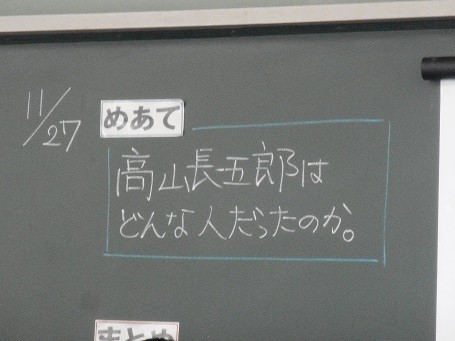 11/27
めあて
高山長五郎は
どんな人だったのか。
まとめ